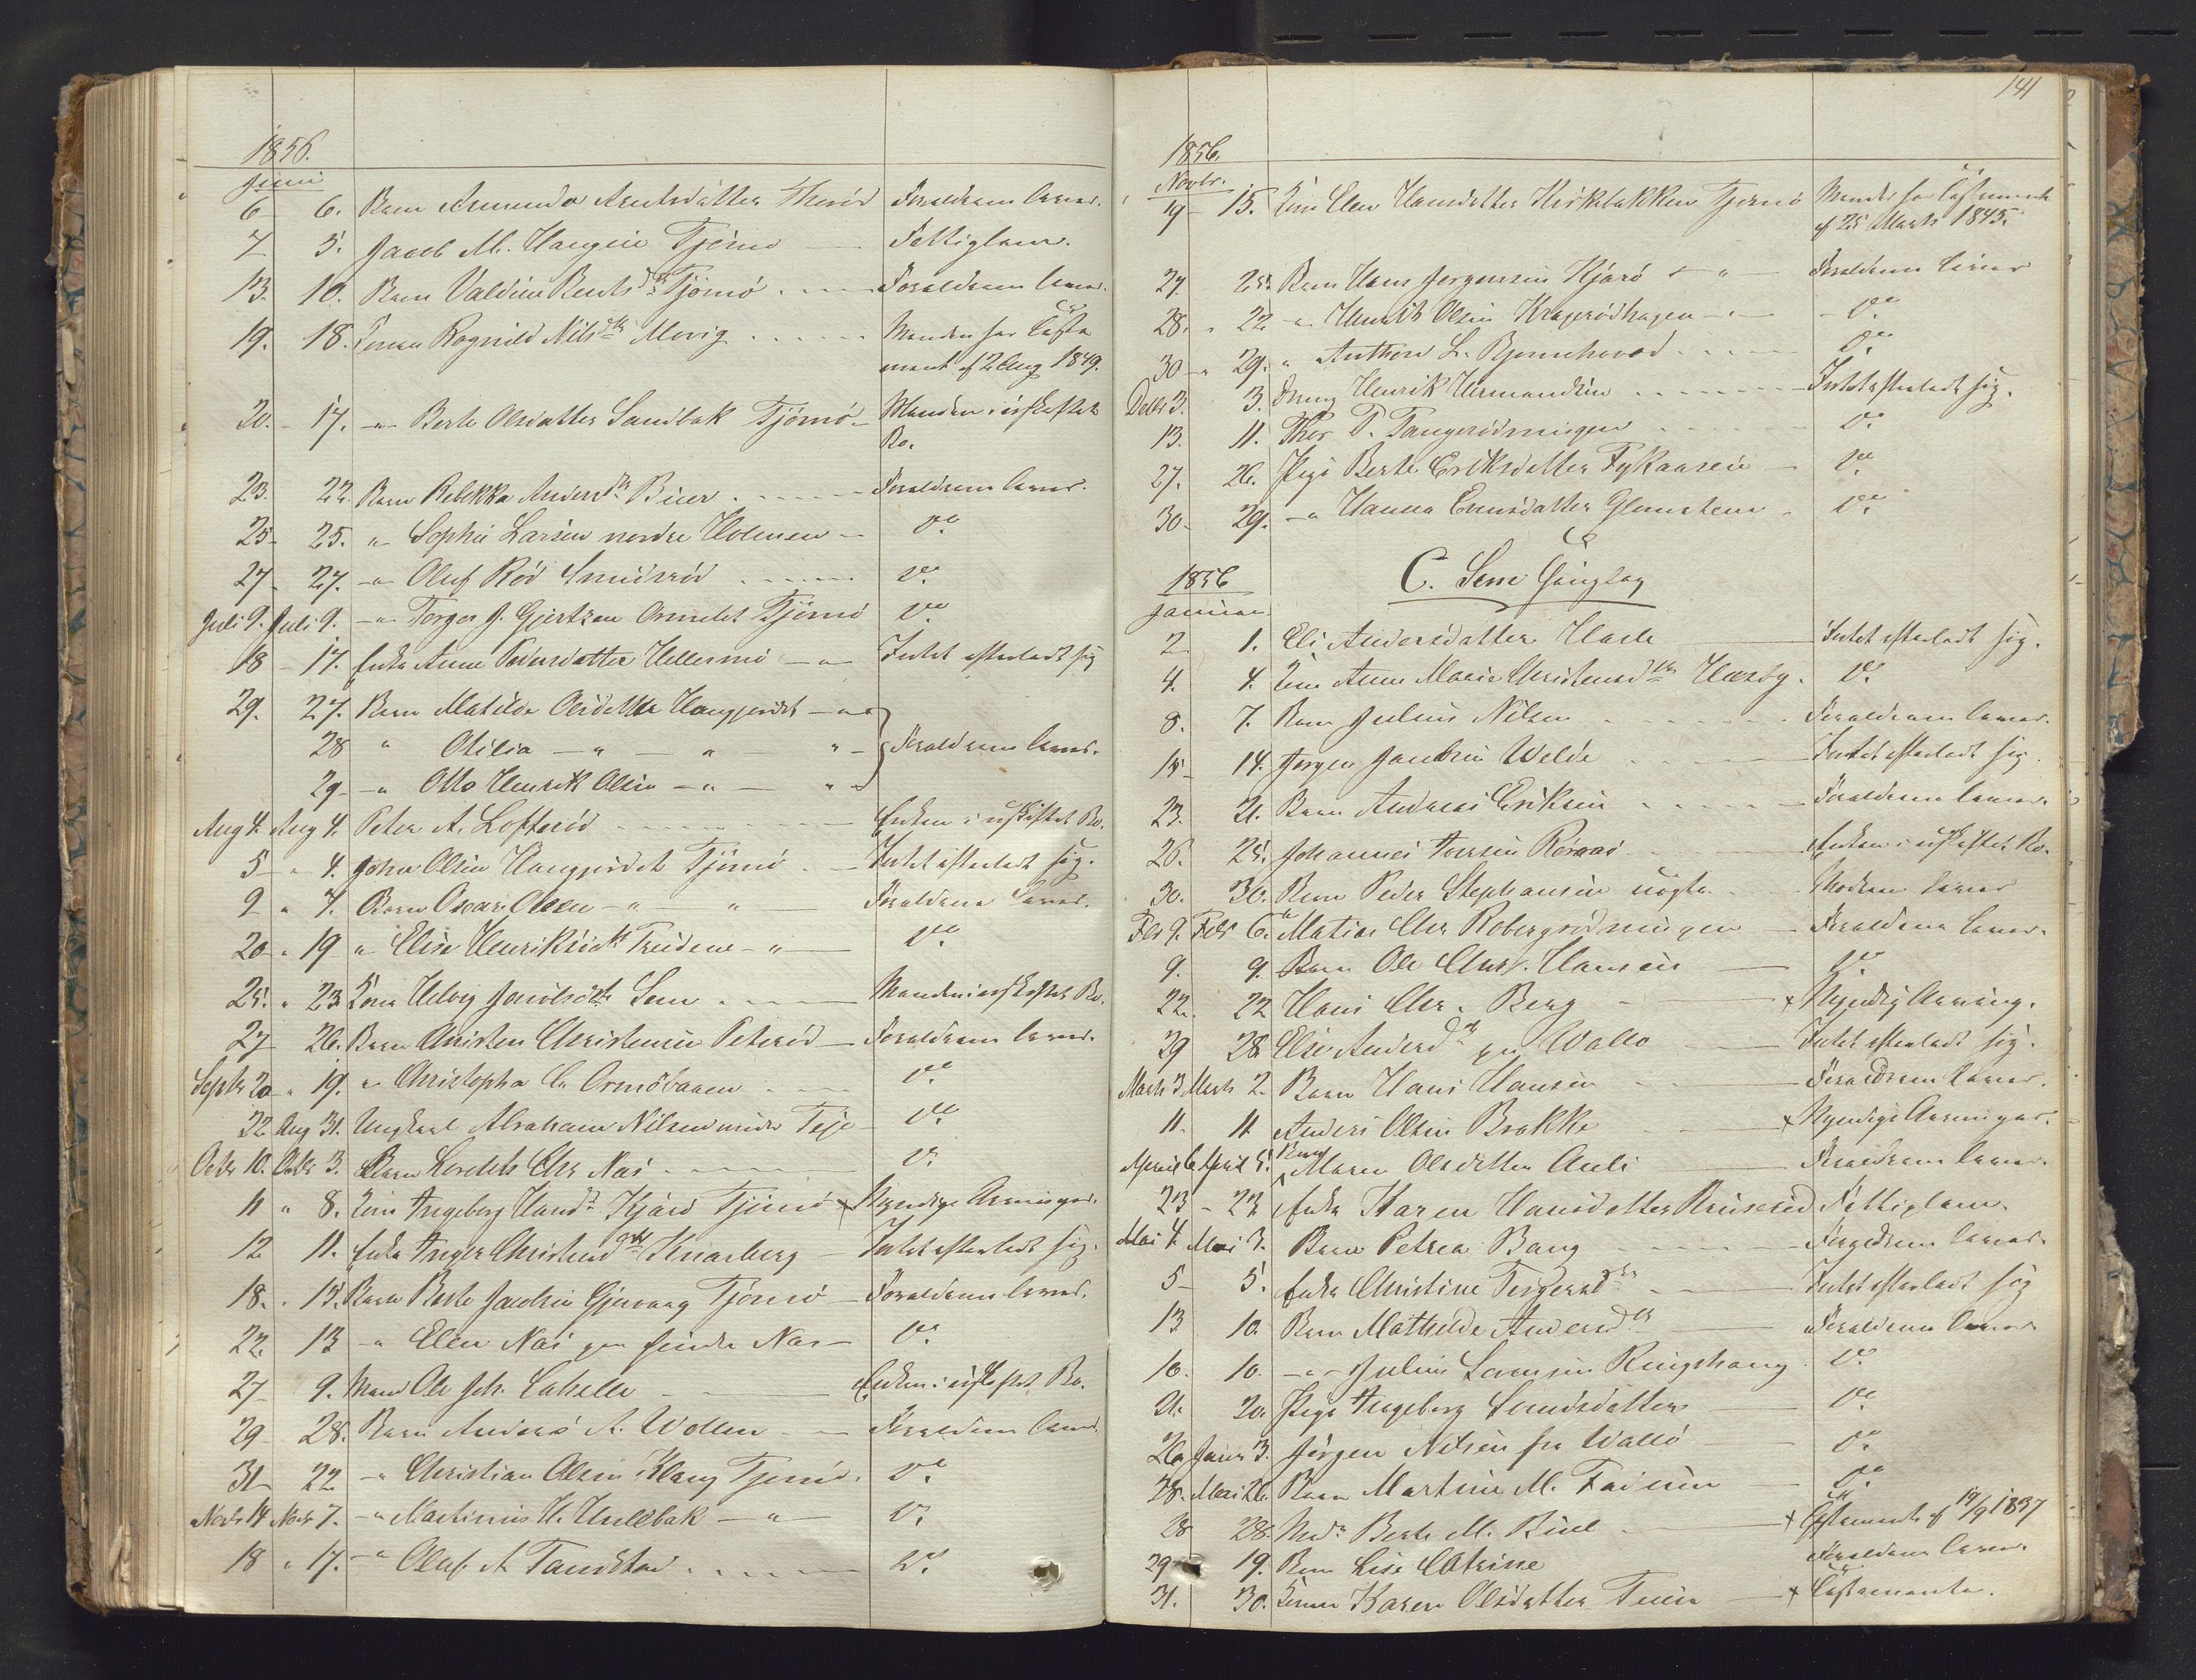 1856.
Juni
6 6. Barn Amunda Arntsdatter Therød Forældrene lever.
7 5. Jacob M. Haugen Tjømø Fattiglem.
13. 10. Barn Valdine Bernts dtr Tjømø Forældrene lever.
19. 18. Konen Ragnild Nils dtr Movig Manden har Testa
ment af 2 Aug 1849.
20. 17. -"- Berte Olsdatter Sandbak Tjømø Manden i uskiftet
Bo.
23. 22. Barn Rebekka Anders dtr Biver Forældrene lever.
25 25. " Sophie Larsen nordre Holmen do
27 27. -"- Oluf Rød Smidsrød do
Juli 9. Juli 9. -"- Torger J. Gjertsen Ormelet Tjømø do
18 17. Enke Anne Pedersdatter Hellesmo -"- Intet efterladt sig
29. 27. Barn Matilde Olsdatter Haugjordet -"-
28 " Otilia -"- " "
Forældrene lever.
29 -" Otto Henrik Olsen -"- "
Aug 4. Aug 4. Peter A. Lofterød Enken i uskiftet Bo.
5 " 4. John Olsen Haugjordet Tjømø Intet efterladt sig.
9 " 7. Barn Oscar Olsen -"- " Forældrene lever.
20 " 19 " Elise Henriks dtr -"- do
25. " 23 Kone Helvig Jacobs dtr Sem Manden i uskiftet Bo.
27 26. Barn Christen Christensen Peterød Forældrene lever.
Septbr 20 " 19. " Christopha C. do
22 Aug 31. Ungkarl Abraham Nilsen nedre Teje do
Octbr 10. Octbr 3. Barn Chr Næs do
11 " 8. Kone Ingeborg Hans dtr Kjærø Tjømø Myndige Arvinger.
12 11. Enke Inger Christens dtr Knarberg Intet efterladt sig.
18. " 15. Barn Berte Jacobsen Gjervaag Tjømø Forældrene lever.
22. 13 -" Elen Næs do
27 9. Mand Ole Joh. Enken i uskiftet Bo.
29 28. Barn Anders A. Wollen Forældrene lever.
31 22 -" Christian Olsen Haug Tjømø. do
Novbr 14 Novbr 7. -" Martinius H. Hulebak -"- do
18 " 17. -" Oluf A. do
141
1856.
Novbr.
19 15. Kone Elen Hansdatter Kirkebakken Tjømø Manden har Testament
af 25 Marts 1845.
27. 25. Barn Hans Jørgensen Kjærø " Forældrene lever
28. " 22 -" Henrik Olsen Kragerødhagen do
30 " 29. " Anthon L. Bjønnehoved do
Decbr 3. 3. Dreng Henrik Hermandsen Intet efterladt sig.
13. 11. Thor P. do
27. 26. Pige Berte Eriksdatter do
30 29. -" Hanna do
C. Sem Thinglag
1856
Januar
2 1. Eli Andersdatter Hasle Intet efterladt sig.
4. 4. Kone Anne Marie Christens dtr Hæsby. do
8. 7. Barn Julius Nilsen Forældrene lever.
15 14. Jørgen Jacobsen Welde Intet efterladt sig.
23. 21. Barn Andreas Eriksen Forældrene lever.
26. 25. Johannes Iversen Enken i uskiftet Bo.
30. 30. Barn Peder Stephansen uægte Moderen lever
Febr 9. Febr 6. " Matias Chr Forældrene lever.
9. 9. Barn Ole Chr. Hansen do
22. 22 Hans Chr. Berg x Myndig Arving.
29 28 Else Anders dtr Wallø Intet efterladt sig.
Marts 3 Marts 2. Barn Hans Hansen Forældrene lever.
11. 11 Anders Olsen Brekke x Myndige Arvinger.
April 6 April 5. Barn Maren Olsdatter Auli Forældrene lever.
23 22 Enke Karen Hansdatter Fattiglem.
Mai 4. Mai 3. Barn Petrea Bang Forældrene lever.
5 5. Enke Christine Torgers dtr Intet efterladt sig
13 10. Barn Mathilde Anders dtr Forældrene lever
16. 10. -"- Julius Larsen Ringshaug do
21. 20. Pige Ingeborg do
26 3. Jørgen Nilsen fra Wallø do
28. Mai 26. Barn Martine M. do
28 28. Berte M. x Testamente af 19/9 1837
29 19. Barn Lise Catrine Forældrene lever.
31. 30. Konen Karen Olsdatter x Testamente.